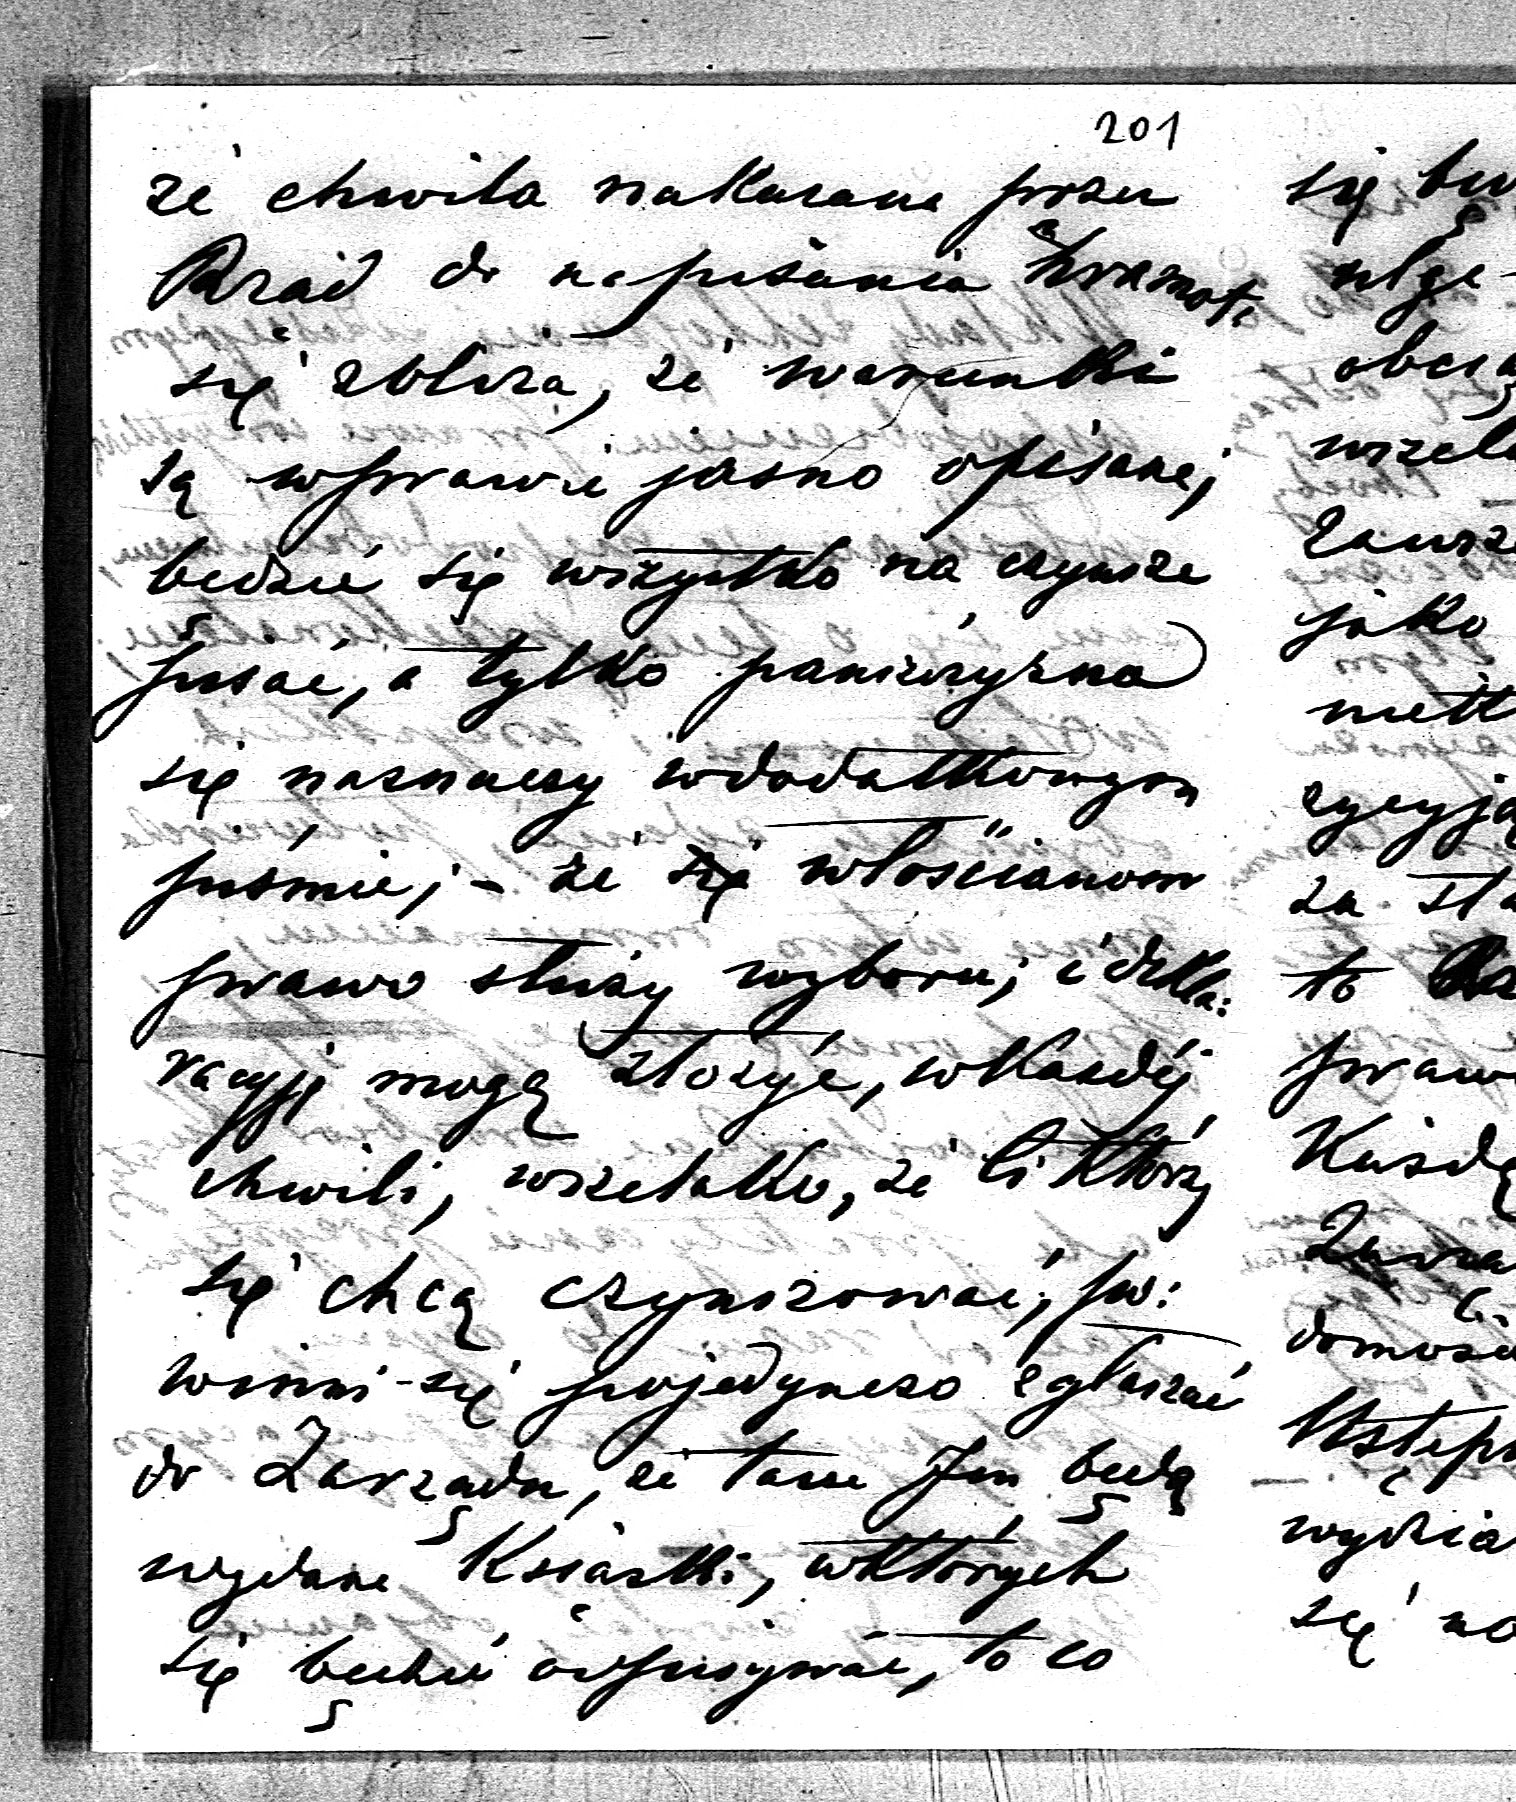 201
że chwila nakazana przez
Rząd do napisania hramot,
się zbliża, że warunki
są w prawie jasno opisane;
będzie się wszystko na czynsze
pisać, a tylko pańszczyzna
się naznaczy w dodatkowym
piśmie; – że się włościanom
prawo służy wyboru; i dekla:
racyję mogą złożyć, w każdéj
chwili, wszelako, że ci którzy
się chcą czynszować; po:
winni się pojedynczo zgłaszać
do Zarządu, że tam Im będą
wydane Książki, w których
się będzie wpisywać, to co
się
ulge
obcią
wszela
zawsze
jako
zycyją
za
to
prawo
Każdą
Wstęp
wydzia
się